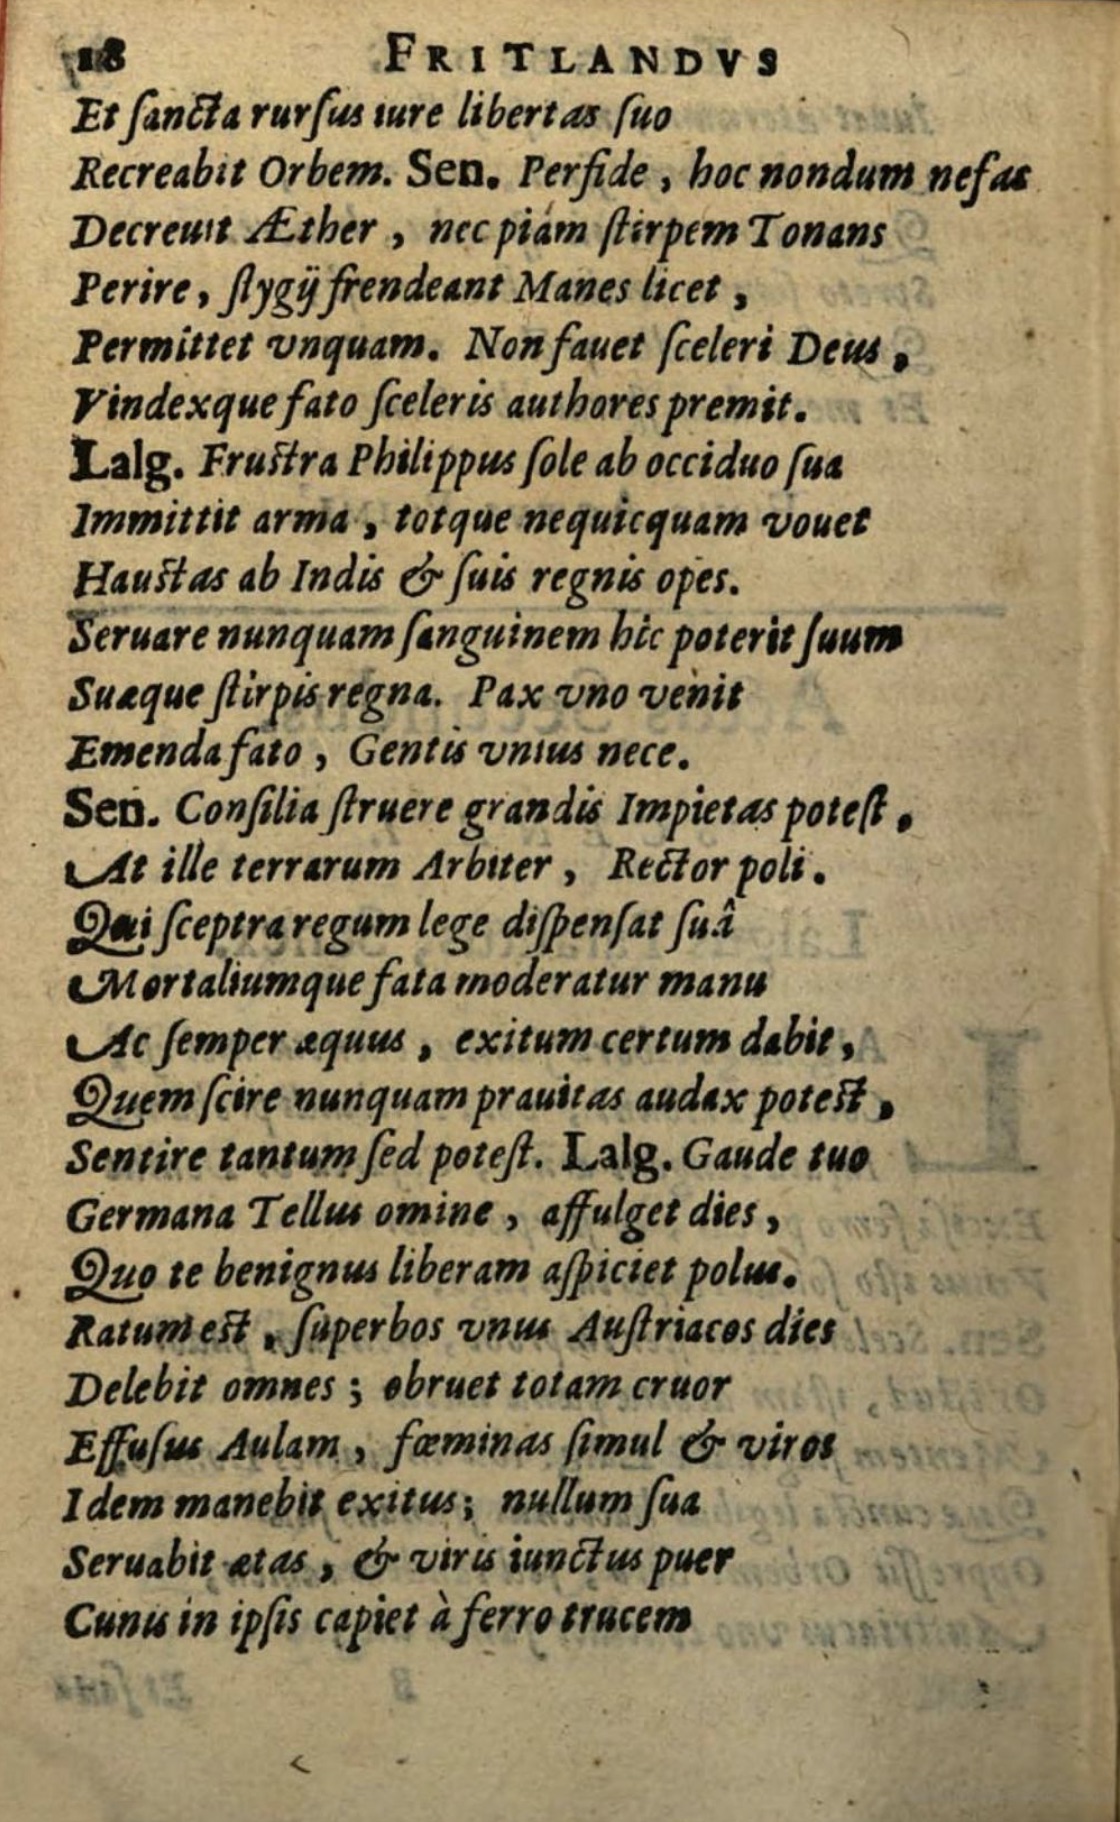 18 FRITLANDVS
Et ſancta rurſus iure libertas ſuo
Recreabit Orbem. Sen. Perfide, hoc nondum nefas
Decreuit Æther, nec piám ſtirpem Tonans
Perire, ſtygij frendeant Manes licet,
Permittet vnquam. Non fauet ſceleri Deus,
Vindexque fato ſceleris authores premit.
Lalg. Fruſtra Philippus ſole ab occiduo ſua
Immittit arma, totque nequicquam vouet
Hauſtas ab Indis & ſuis regnis opes.
Seruare nunquam ſanguinem hic poterit ſuum
Suæque ſtirpis regna. Pax vno venit
Emenda fato, Gentis vnius nece.
Sen. Conſilia ſtruere grandis Impietas poteſt,
At ille terrarum Arbiter, Rector poli.
Qui ſceptra regum lege diſpenſat ſuâ
Mortaliumque fata moderatur manu
Ac ſemper æquus, exitum certum dabit,
Quem ſcire nunquam prauitas audax poteſt,
Sentire tantum ſed poteſt. Lalg. Gaude tuo
Germana Tellus omine, affulget dies,
Quo te benignus liberam aſpiciet polus.
Ratum eſt, ſuperbos vnus Auſtriacos dies
Delebit omnes; obruet totam cruor
Effuſus Aulam, fœminas ſimul & viros
Idem manebit exitus; nullum ſua
Seruabit ætas, & viris iunctus puer
Cunis in ipſis capiet à ferro trucem